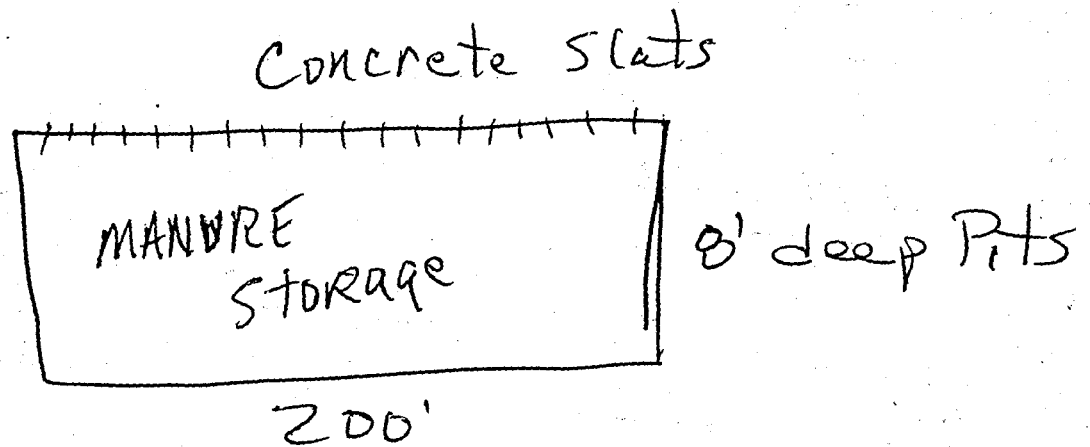 Concrete Slats
MANURE
STORAGE
8' deep Pits
200'